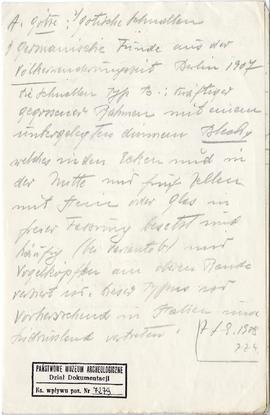 A. Götze: Gotische Schnallen
Germanische Funde aus der
Völkerwanderungszeit Berlin 1907
Die Schnallen Typ B: kräftiger
gegossener Rahmen mit einem
untergelegten dünnem Blech,
welches in den Ecken und in
der Mitte mit fünf Zellen
mit Stein oder Glas in
freier Fassung besetzt und
häufig (bei Variante b) mit
Vogelköpfen am oberen Rande
verziert ist. Dieser Typus ist
vorherrschend in Italien und
Südrussland vertreten.
1908
PAŃSTWOWE MUZEUM ARCHEOLOGICZNE
Dział Dokumentacji
Ks. wpływu pot. Nr 7279